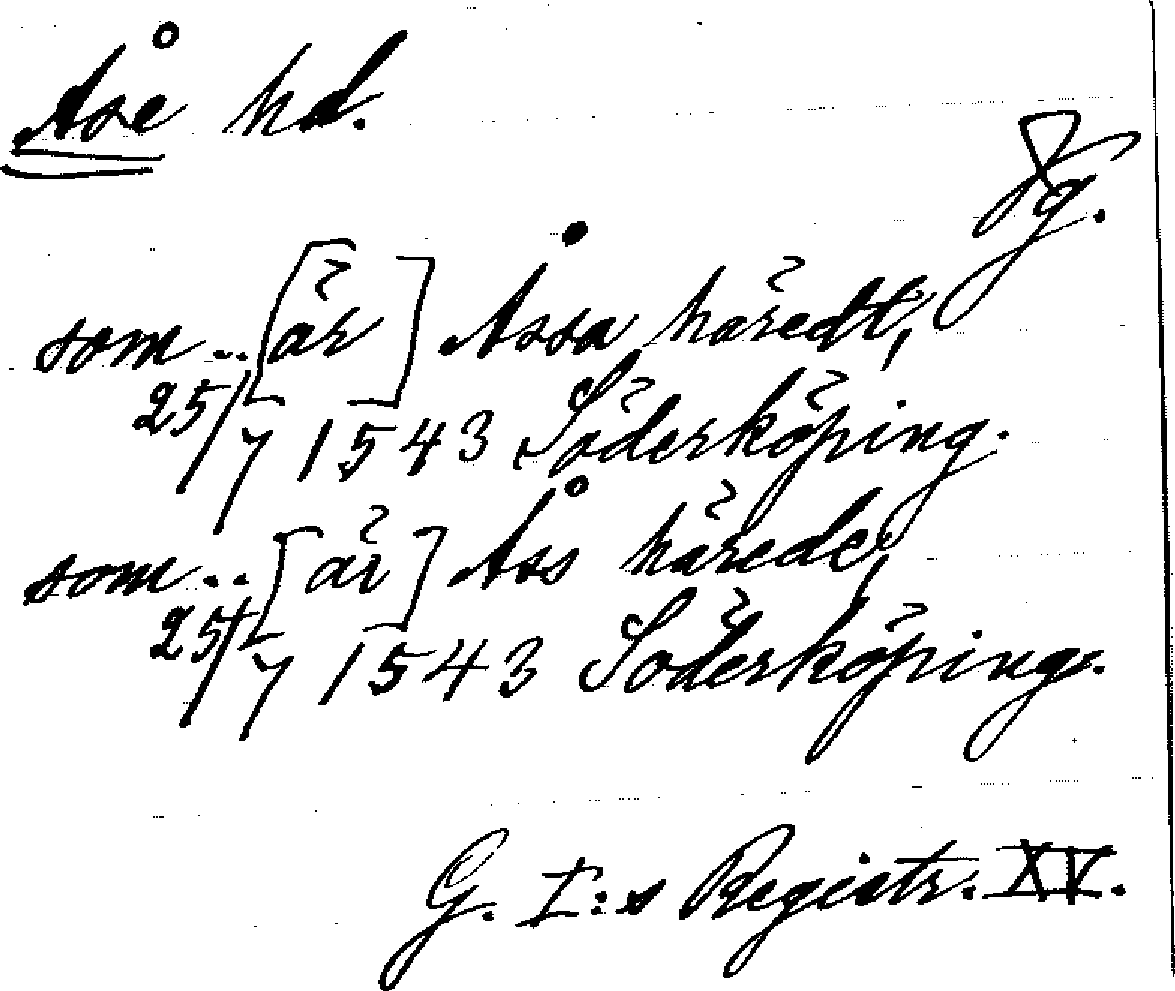 Åse hd.
Vg.
som .. [är] Åssa häredt,
25/7 1543 Söderköping.
som .. [är] Åss härede,
25/7 1543 Söderköping.
G. I:s Registr. XV.